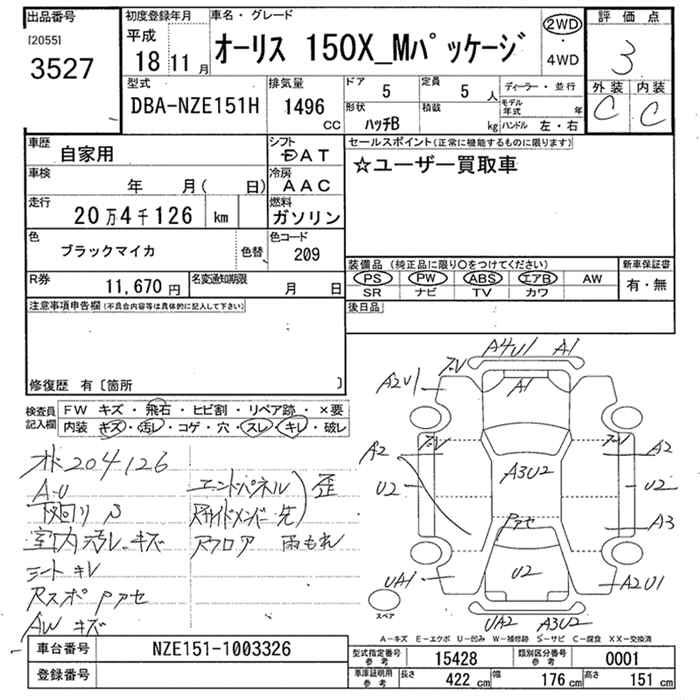 出品番号
[2055]
3527
初度登録年月
平成
18 11 月
車名・グレード
オーリス 150X_Mパッケージ
2WD
・
4WD
評価点
3
外装 内装
C C
型式
DBA-NZE151H
排気量
1496
CC
ドア
5
定員
5 人
形状
ハッチB
積載
kg
ディーラー・並行
モデル年式 年
ハンドル 左・右
車歴
自家用
シフト
DAT
車検
年 月( 日)
冷房
AAC
走行
20万4千126 km
燃料
ガソリン
色
ブラックマイカ
色替
色コード
209
R券
11,670 円
名変通知期限
月 日
セールスポイント(正常に機能するものに限ります)
☆ユーザー買取車
装備品 (純正品に限り○をつけてください)
新車保証書
PS PW ABS エアB AW
SR ナビ TV カワ
有・無
後日品
注意事項申告欄(不具合内容等は具体的に記入して下さい)
修復歴 有〔箇所 〕
検査員記入欄
FW キズ・飛石・ヒビ割・リペア跡・×要
内装 キズ・汚レ・コゲ・穴・スレ・キレ・破レ
204126
A-U
下廻り
室内汚レ キズ
シート キレ
Rスポ Pアセ
AW キズ
エンドパネル
歪
Rサイドメンバー先
Rフロア 雨もれ
A4U1 A1
A2U1
A1
A2
A2
A3U2
U2
U2
A3
Pアセ
U2
UA1
A2U1
スペア
UA2 A3U2
A-キズ E-エクボ U-凹み W-補修跡 S-サビ C-腐食 XX-交換済
車台番号
NZE151-1003326
登録番号
型式指定番号
参考
15428
類別区分番号
参考
0001
車庫証明用
参考
長さ
422 cm
幅
176 cm
高さ
151 cm